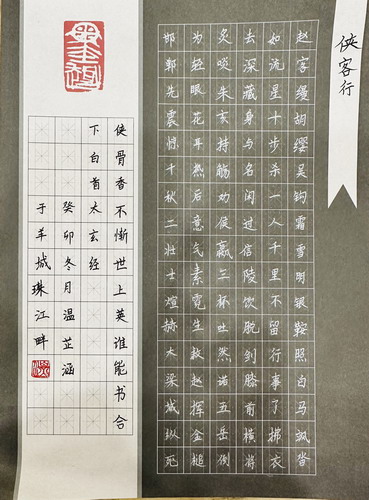 侠客行
赵客缦胡缨吴钩霜雪明银鞍照白马飒沓
如流星十步杀一人千里不留行事了拂衣
去深藏身与名闲过信陵饮脱剑膝前横将
炙啖朱亥持觞劝侯嬴三杯吐然诺五岳倒
为轻眼花耳热后意气素霓生救赵挥金槌
邯郸先震惊千秋二壮士煊赫大梁城纵死
侠骨香不惭世上英谁能书合
下白首太玄经
癸卯冬月温芷涵
于羊城珠江畔